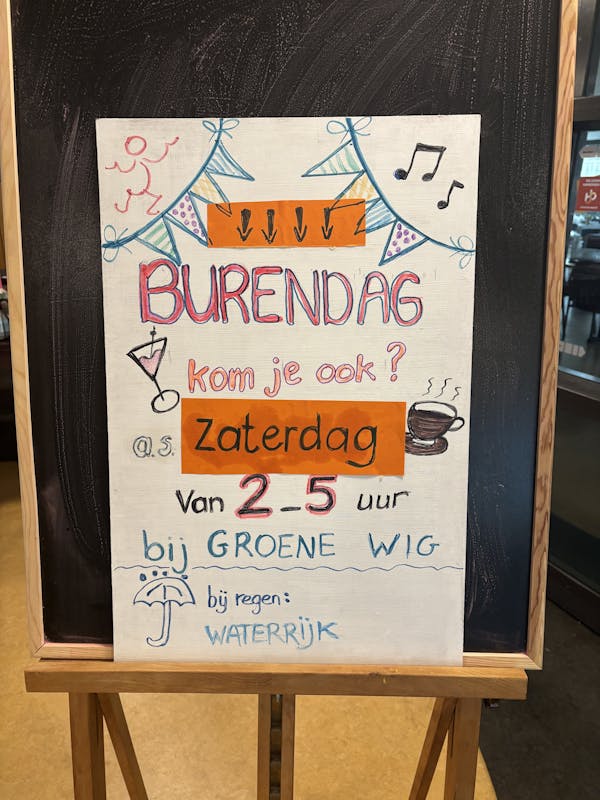 BURENDAG
kom je ook?
a.s. Zaterdag
Van 2-5 uur
bij GROENE WIG
bij regen:
WATERRIJK